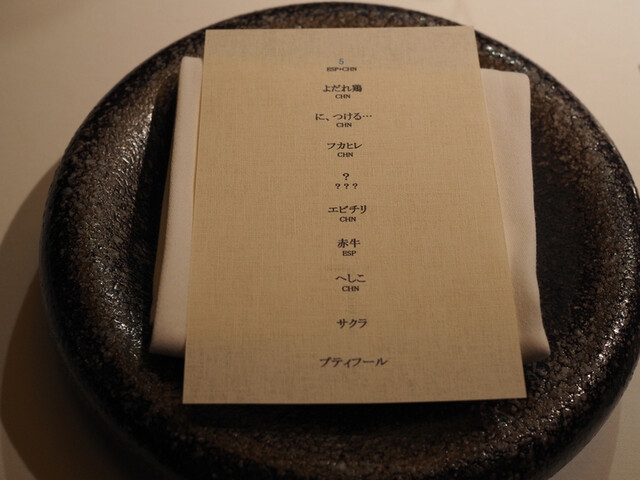 5
ESP×CHN
よだれ鶏
CHN
に、つける…
CHN
フカヒレ
CHN
?
???
エビチリ
CHN
赤牛
ESP
へしこ
CHN
サクラ
プティフール